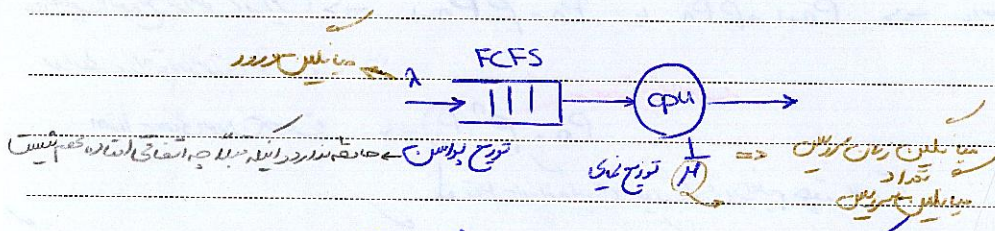 FCFS
میانگین ورود
λ
cpu
توزیع پواسن → حافظه ندارد در اینکه قبلا چه اتفاقی افتاده مهم نیست
توزیع نمایی
1/μ ⇒ میانگین زمان سرویس
تعداد
میانگین سرویس